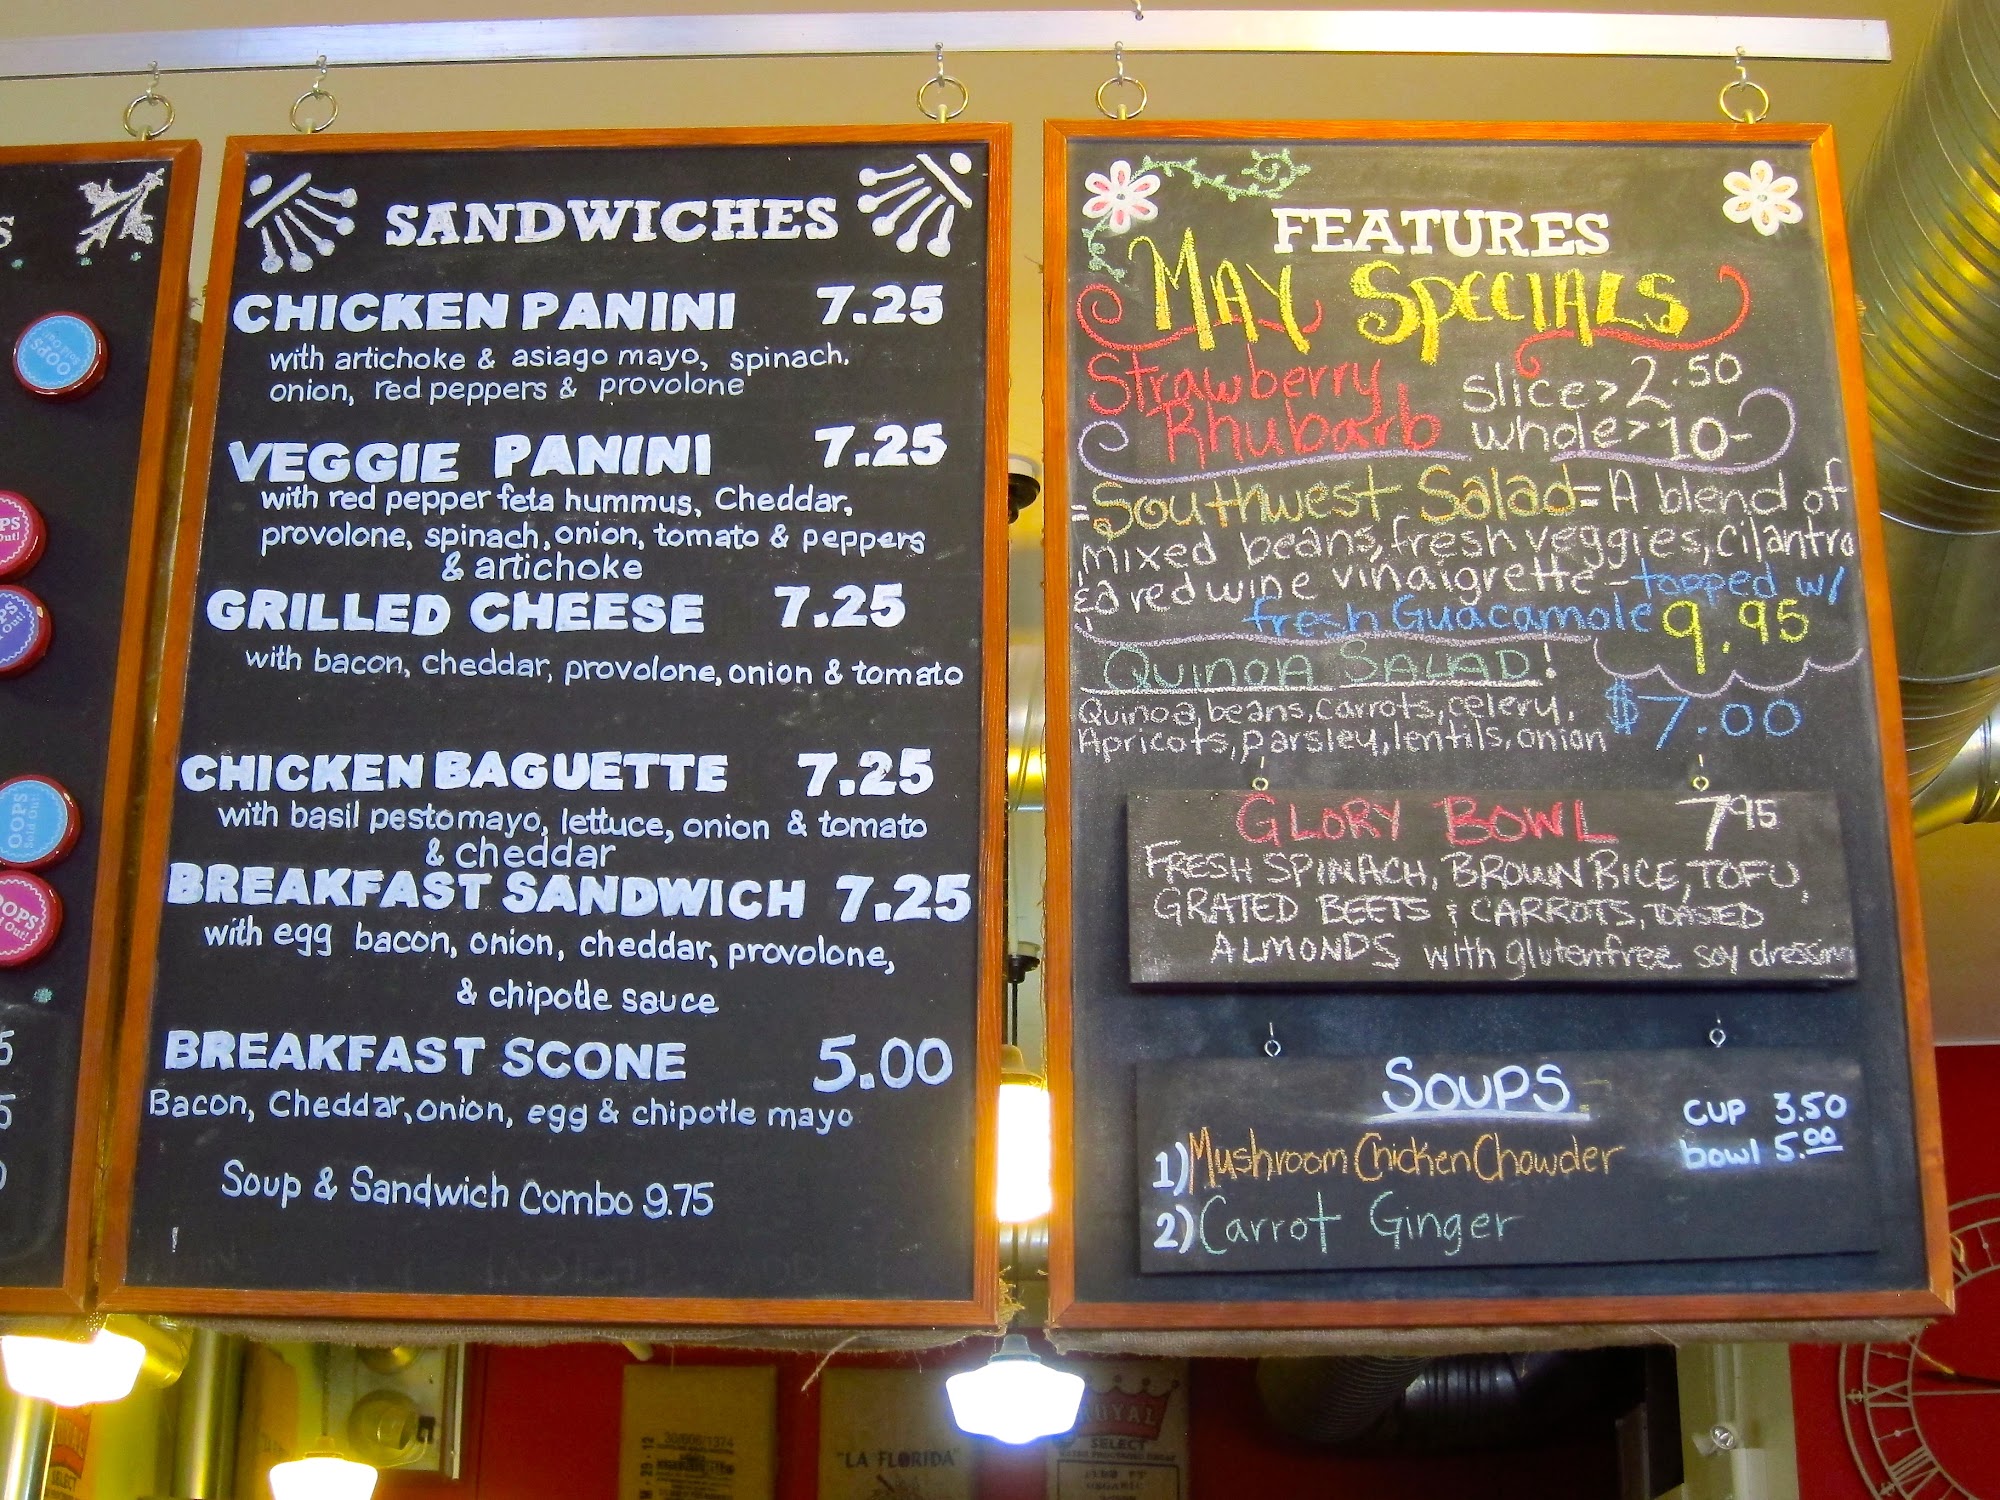 S
OOPS
Sold Out!
OPS
Out!
OPS
Out!
OOPS
Sold Out!
OOPS
Out!
5
5
SANDWICHES
CHICKEN PANINI 7.25
with artichoke & asiago mayo, spinach,
onion, red peppers & provolone
VEGGIE PANINI 7.25
with red pepper feta hummus, Cheddar,
provolone, spinach, onion, tomato & peppers
& artichoke
GRILLED CHEESE 7.25
with bacon, cheddar, provolone, onion & tomato
CHICKEN BAGUETTE 7.25
with basil pesto mayo, lettuce, onion & tomato
& cheddar
BREAKFAST SANDWICH 7.25
with egg bacon, onion, cheddar, provolone,
& chipotle sauce
BREAKFAST SCONE 5.00
Bacon, Cheddar, onion, egg & chipotle mayo
Soup & Sandwich Combo 9.75
FEATURES
MAY SPECIALS
Strawberry slice > 2.50
Rhubarb whole > 10-
=Southwest Salad = A blend of
mixed beans, fresh veggies, Cilantro
& a red wine vinaigrette - topped w/
fresh Guacamole 9.95
QUINOA SALAD!
Quinoa, beans, carrots, celery, $7.00
Apricots, parsley, lentils, onion
GLORY BOWL 7.95
FRESH SPINACH, BROWN RICE, TOFU,
GRATED BEETS & CARROTS, TOASTED
ALMONDS with gluten free soy dressing
SOUPS
CUP 3.50
bowl 5.00
1) Mushroom Chicken Chowder
2) Carrot Ginger
30/606/1374
"LA FLORIDA"
ROYAL
SELECT